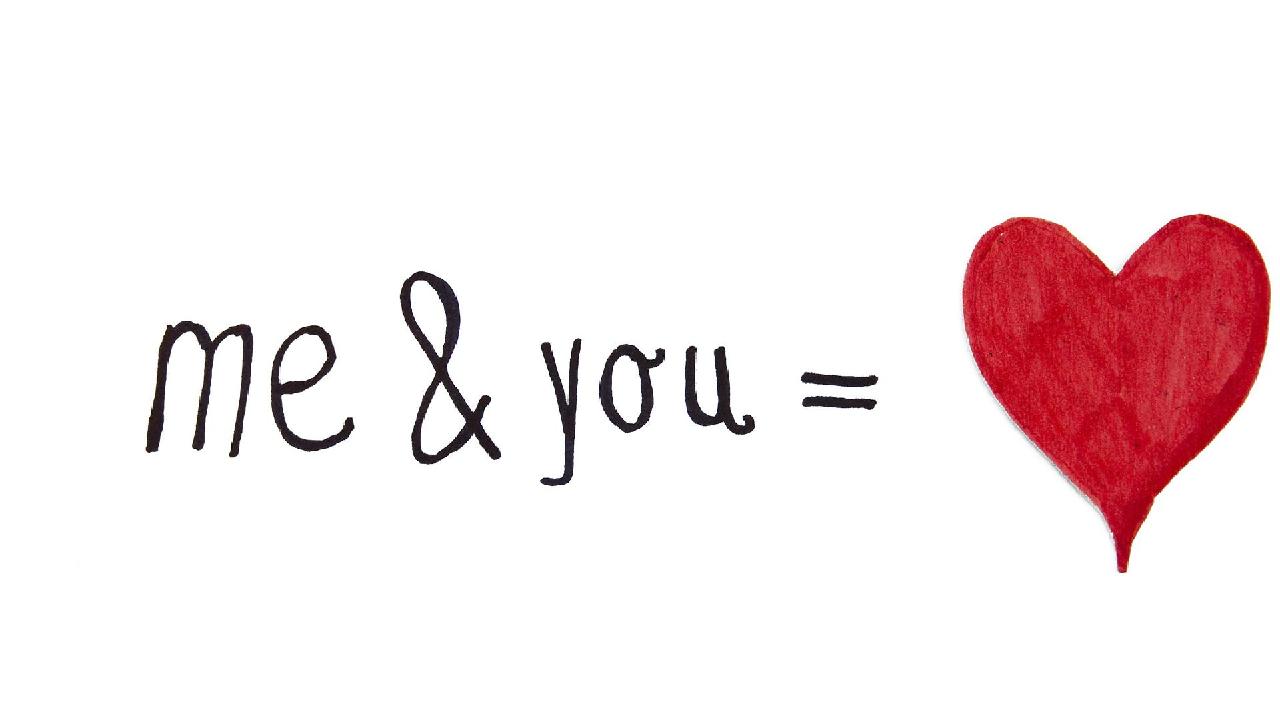 me & you =